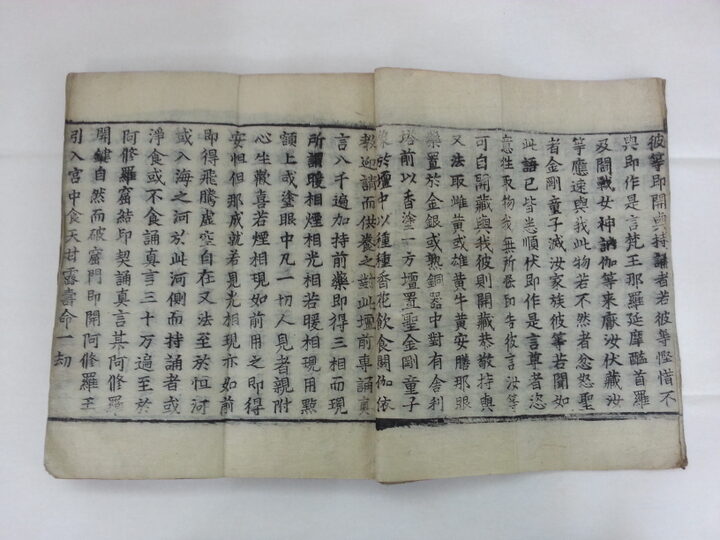 彼等即開與持誦者若彼等慳惜不
與即作是言梵王那羅延摩醯首羅
及鬪戰女神訥伽等來廠汝伏藏汝
等應速與我此物若不然者忿怒聖
者金剛童子滅汝家族彼等聞如
此語已皆悉順伏即作是言尊者恣
意往取物我無所吝即告彼言汝等
可自開藏與我彼則開藏恭敬持與
又法取雌黃或雄黃牛黃安膳那眼
藥置於金銀或熟銅器中對有舍利
塔前以香塗一方壇置聖金剛童子
像於壇中以種種香花飲食閼伽依
教迎請而供養之對此壇前專誦真
言八千遍加持前藥即得三相而現
所謂暖相煙相光相若暖相現用點
額上或塗眼中凡一切人見者親附
心生歡喜若煙相現如前用之即得
安怛但那成就若見光相現亦如前
即得飛騰虛空自在又法至於恒河
或入海之河於此河側而持誦者或
淨食或不食誦真言三十万遍至於
阿修羅窟結印契誦真言其阿修羅
關鍵自然而破窟門即開阿修羅王
引入宮中食天甘露壽命一劫